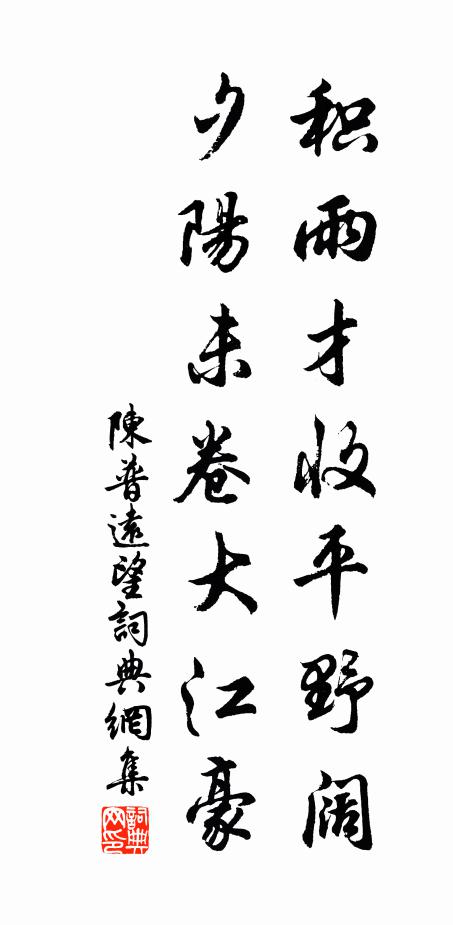 积雨才收平野阔
夕陽未卷大江豪
陳普遠望詞典網集
詞典网印